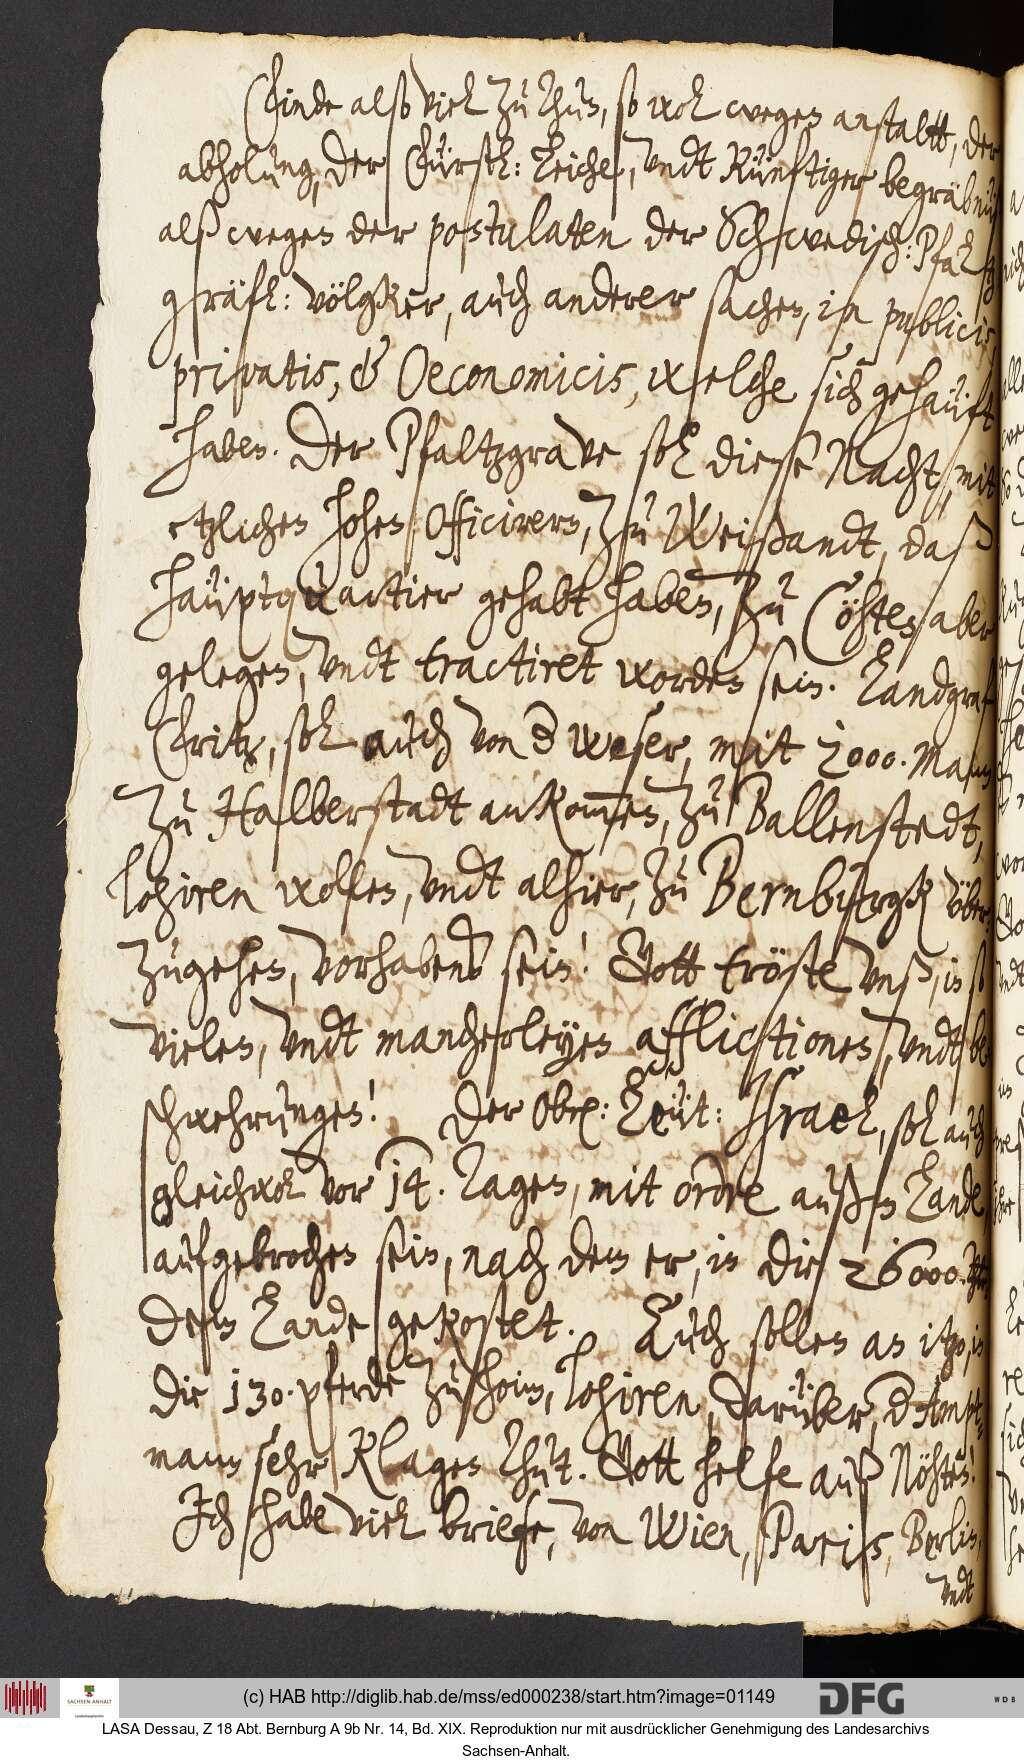 Finde also viel zu thun, so wol wegen anstaltt, der
abholung, der Fürstl: Leiche, undt Künftiger begräbnüß
alß wegen der postulaten der Schwedisch: Pfaltz
gräfl: völgker, auch anderer sachen, in publicis,
privatis, & Oeconomicis, welche sich gehäuft
haben. Der Pfaltzgrave sol diese Nacht, mit
etzlichen hohen Officirern, zu Weißandt, daß
häuptquartier gehabt haben, zu Cöhten aber
gelegen, undt tractiret worden sein. Landgraf
Fritz, sol auch von d Weser, mit 2000. Mann
zu Halberstadt ankommen, zu Ballenstedt,
losiren wollen, undt alhier, zu Bernburgk über-
zugehen, vorhabens sein! Gott tröste unß, in so
vielen, undt mancherleyen afflictionen, undt be-
schwehrungen! Der Obrl: Leüt: Israel, sol auch
gleichwol vor 14. Tagen, mit ordre außm Lande
aufgebrochen sein, nach dem er, in die 26000. Thlr
dem Lande gekostet. Auch sollen an itzo, in
die 130. pferde zu Hoim, losiren, darüber, d Ampt-
mann sehr klagen thut. Gott helfe auß Nöhten!
Ich habe viel briefe, von Wien, Pariß, Berlin,
undt
(c) HAB http://diglib.hab.de/mss/ed000238/start.htm?image=01149
SACHSEN-ANHALT
DFG
WDB
LASA Dessau, Z 18 Abt. Bernburg A 9b Nr. 14, Bd. XIX. Reproduktion nur mit ausdrücklicher Genehmigung des Landesarchivs
Sachsen-Anhalt.